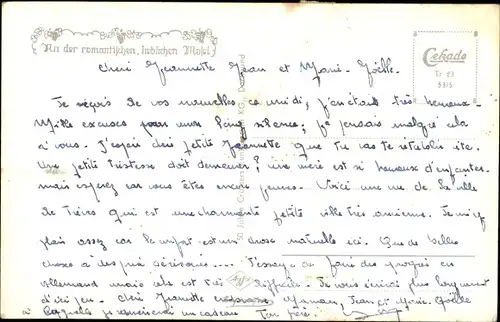 An der romantischen, lieblichen Mosel
Cekade
Tr 53
Cheri Jeannette Jean et Marie-Joëlle.
Je reçois de vos nouvelles ce midi, j'en étais très heureux
Mille excuses pour mon long silence, je pensais malgré cela
à vous. J'espère petite Jeannette que tu vas te rétablir vite.
Une petite tristesse doit demeurer? une mère est si heureuse d'enfanter
mais espérez car vous êtes encore jeunes. Voici une vue de la ville
de Trèves qui est une charmante petite ville très ancienne. Je m'y
plais assez car le confort est une chose naturelle ici. Que de belles
choses à des prix dérisoires... J'essaye de faire des progrès en
allemand mais cela est très difficile. Je vous écrirai plus longuement
d'ici peu. Cheri Jeannette Maman, Jean et Marie-Joëlle
à laquelle un cadeau Ton frère